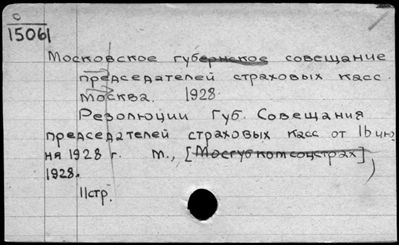 0
15061
Московское губернское совещание
председателей страховых касс.
Москва. 1928.
Резолюции Губ. Совещания
председателей страховых касс от 16 ию
ня 1928 г. М., [Мосгубкомсоцстрах],
1928.
11стр.